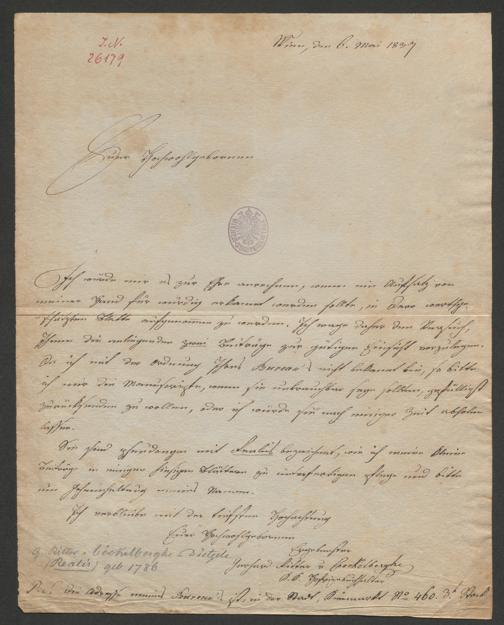 I. N.
26179
Wien, den 6. Mai 1837
Euer Hochwohlgebornen
Ich würde mir es zur Ehre anrechnen, wenn ein Aufsatz von
meiner Hand für würdig erkannt werden sollte, in Dero
Blatte aufgenommen zu werden. Ich wage daher den Versuch,
Ihnen die anliegenden zwei Beiträge zur gütigen Einsicht vorzulegen.
Da ich mit der Ordnung Ihres Bureau's nicht bekannt bin, so bitte
ich mir die Manuscripte, wenn sie unbrauchbar seyn sollten, gefälligst
zurücksenden zu wollen, oder ich würde sie nach einiger Zeit abholen
lassen.
Sie sind mit Realis bezeichnet, wie ich meine kleinen
Beiträge in einigen hiesigen Blättern zu unterfertigen pflege und bitte
um meines Namens.
Ich verbleibe mit der tiefsten Hochachtung
Euer Hochwohlgebornen
Ergebenster
Gerhard Ritter v. Coeckelberghe
k. k. Hofbuchhalter
G. Ritter v. Cockelberghe-Dietzele
(Realis) geb 1786
Die Adresse meines Bureau's ist, in der Stadt, No 460. 3t Stock